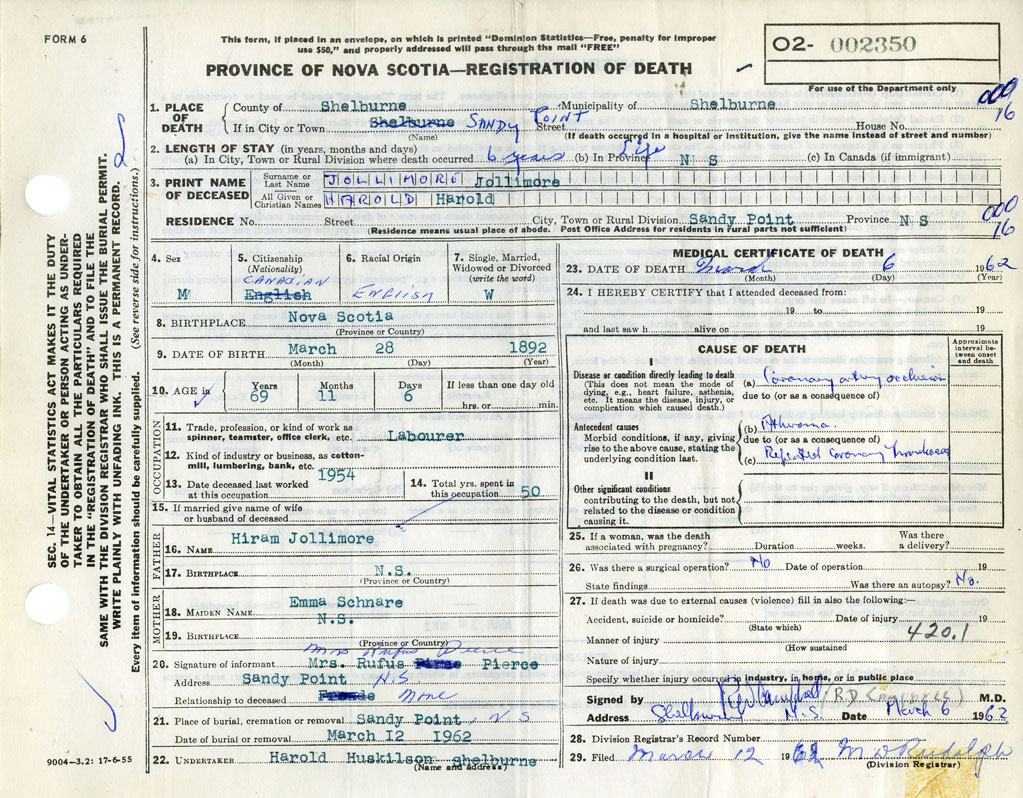 FORM 6
This form, if placed in an envelope, on which is printed "Dominion Statistics—Free, penalty for improper
use $50," and properly addressed will pass through the mail "FREE"
PROVINCE OF NOVA SCOTIA—REGISTRATION OF DEATH
O2- 002350
For use of the Department only
000
16
SEC. 14—VITAL STATISTICS ACT MAKES IT THE DUTY
OF THE UNDERTAKER OR PERSON ACTING AS UNDER-
TAKER TO OBTAIN ALL THE PARTICULARS REQUIRED
IN THE "REGISTRATION OF DEATH" AND TO FILE THE
SAME WITH THE DIVISION REGISTRAR WHO SHALL ISSUE THE BURIAL PERMIT.
WRITE PLAINLY WITH UNFADING INK. THIS IS A PERMANENT RECORD.
Every item of information should be carefully supplied. (See reverse side for instructions.)
1. PLACE OF DEATH
County of Shelburne Municipality of Shelburne
If in City or Town Shelburne SANDY POINT Street House No.
(Name) (If death occurred in a hospital or institution, give the name instead of street and number)
2. LENGTH OF STAY (in years, months and days)
(a) In City, Town or Rural Division where death occurred 6 years (b) In Province Life N S (c) In Canada (if immigrant)
3. PRINT NAME OF DECEASED
Surname or Last Name JOLLIMORE Jollimore
All Given or Christian Names HAROLD Harold
000
16
RESIDENCE No. Street City, Town or Rural Division Sandy Point Province N S
(Residence means usual place of abode. Post Office Address for residents in rural parts not sufficient)
4. Sex
M
5. Citizenship
(Nationality)
CANADIAN
English
6. Racial Origin
ENGLISH
7. Single, Married,
Widowed or Divorced
(write the word)
W
8. BIRTHPLACE Nova Scotia
(Province or Country)
9. DATE OF BIRTH March 28 1892
(Month) (Day) (Year)
10. AGE in
Years Months Days If less than one day old
69 11 6 hrs. or min.
OCCUPATION
11. Trade, profession, or kind of work as
spinner, teamster, office clerk, etc. Labourer
12. Kind of industry or business, as cotton-
mill, lumbering, bank, etc.
13. Date deceased last worked
at this occupation 1954
14. Total yrs. spent in
this occupation 50
15. If married give name of wife
or husband of deceased
FATHER
16. NAME Hiram Jollimore
17. BIRTHPLACE N.S.
(Province or Country)
MOTHER
18. MAIDEN NAME Emma Schnare
19. BIRTHPLACE N.S.
(Province or Country)
Mrs Rufus Pierce
20. Signature of informant Mrs. Rufus Pierce
Address Sandy Point N.S
Relationship to deceased None
21. Place of burial, cremation or removal Sandy Point, N S
Date of burial or removal March 12 1962
22. UNDERTAKER Harold Huskilson Shelburne
(Name and address)
9004—3.2: 17-6-55
MEDICAL CERTIFICATE OF DEATH
23. DATE OF DEATH March 6 1962
(Month) (Day) (Year)
24. I HEREBY CERTIFY that I attended deceased from:
19 to 19
and last saw h alive on 19
CAUSE OF DEATH
Approximate
interval be-
tween onset
and death
I
Disease or condition directly leading to death
(This does not mean the mode of
dying, e.g., heart failure, asthenia,
etc. It means the disease, injury, or
complication which caused death.)
(a) Coronary artery occlusion
due to (or as a consequence of)
Antecedent causes
Morbid conditions, if any, giving
rise to the above cause, stating the
underlying condition last.
(b) Atheroma
due to (or as a consequence of)
(c) Repeated Coronary Thrombosis
II
Other significant conditions
contributing to the death, but not
related to the disease or condition
causing it.
25. If a woman, was the death
associated with pregnancy? Duration weeks. Was there
a delivery?
26. Was there a surgical operation? No Date of operation 19
State findings Was there an autopsy? No.
27. If death was due to external causes (violence) fill in also the following:—
Accident, suicide or homicide? Date of injury 19
(State which)
420.1
Manner of injury
(How sustained
Nature of injury
Specify whether injury occurred in industry, in home, or in public place
Signed by (R.D CAMPBELL) M.D.
Address Shelburne N.S. Date March 6 1962
28. Division Registrar's Record Number
29. Filed March 12 1962 M D Rudolph
(Division Registrar)